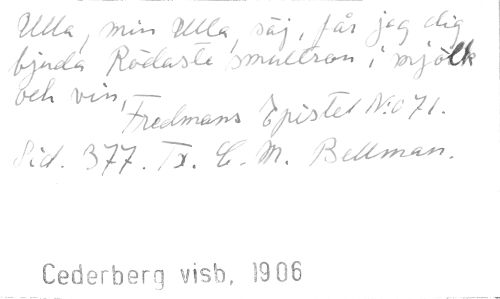 Ulla, min Ulla, säj, får jag dig
bjuda Rödaste smultron i mjölk
och vin,
Fredmans Epistel No 71.
Sid. 377. Tx. C. M. Bellman.
Cederberg visb. 1906